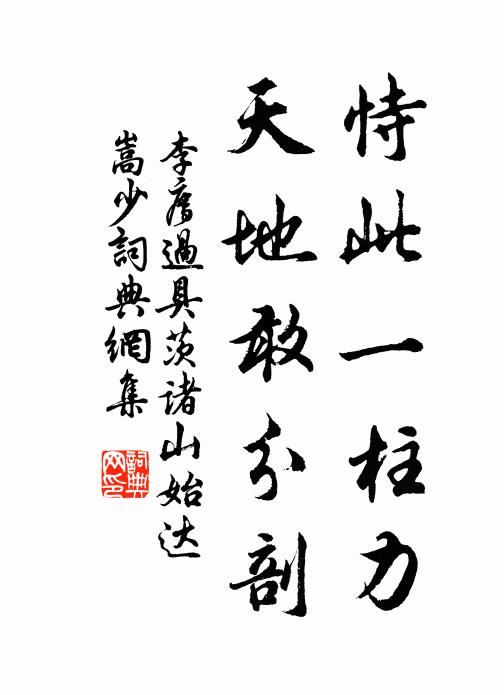 恃此一柱力
天地敢分剖
李廌過具茨諸山始达
嵩少詞典網集
詞典
网印